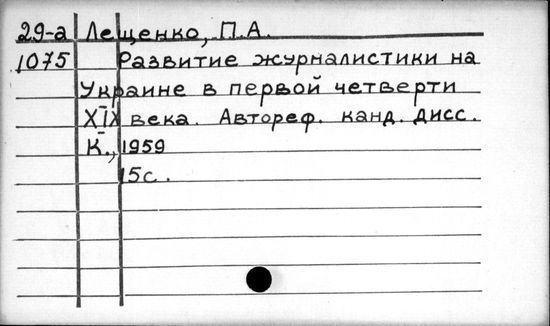 29-а Лещенко, П.А.
1075 Развитие журналистики на
Украине в первой четверти
XIX века. Автореф. канд. дисс.
К., 1959
15с.